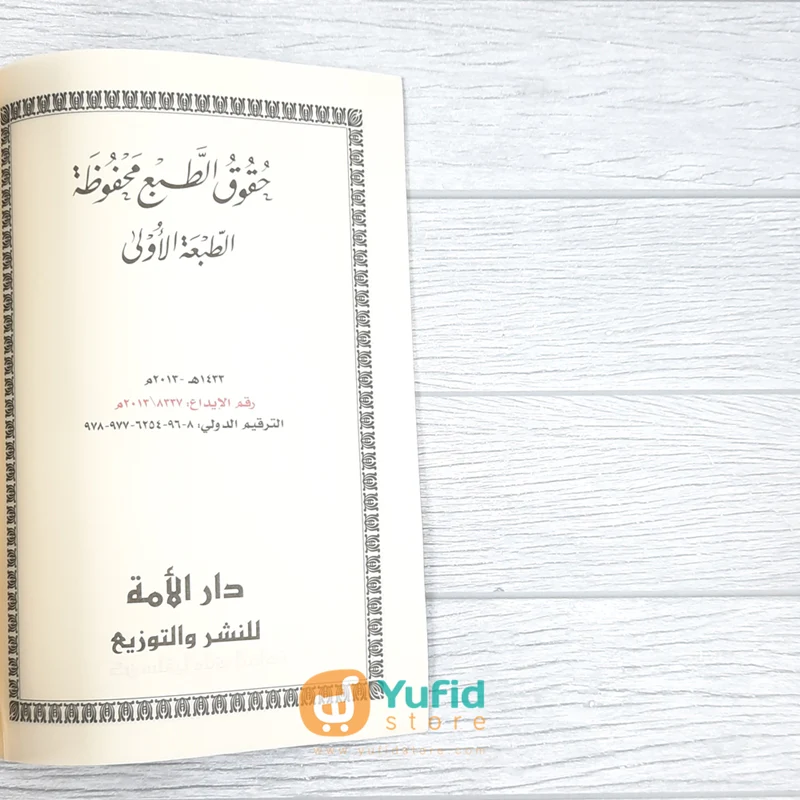 حُقُوقُ الطَّبْعِ مَحْفُوظَة
الطَّبْعَة الأُوْلى
١٤٣٣هـ -٢٠١٣م
رقم الإيداع: ٨٢٢٧\٢٠١٣م
الترقيم الدولي: ٨-٩٦-٦٢٥٤-٩٧٧-٩٧٨
دار الأمة
للنشر والتوزيع
Yufid
store
www.yufidstore.com